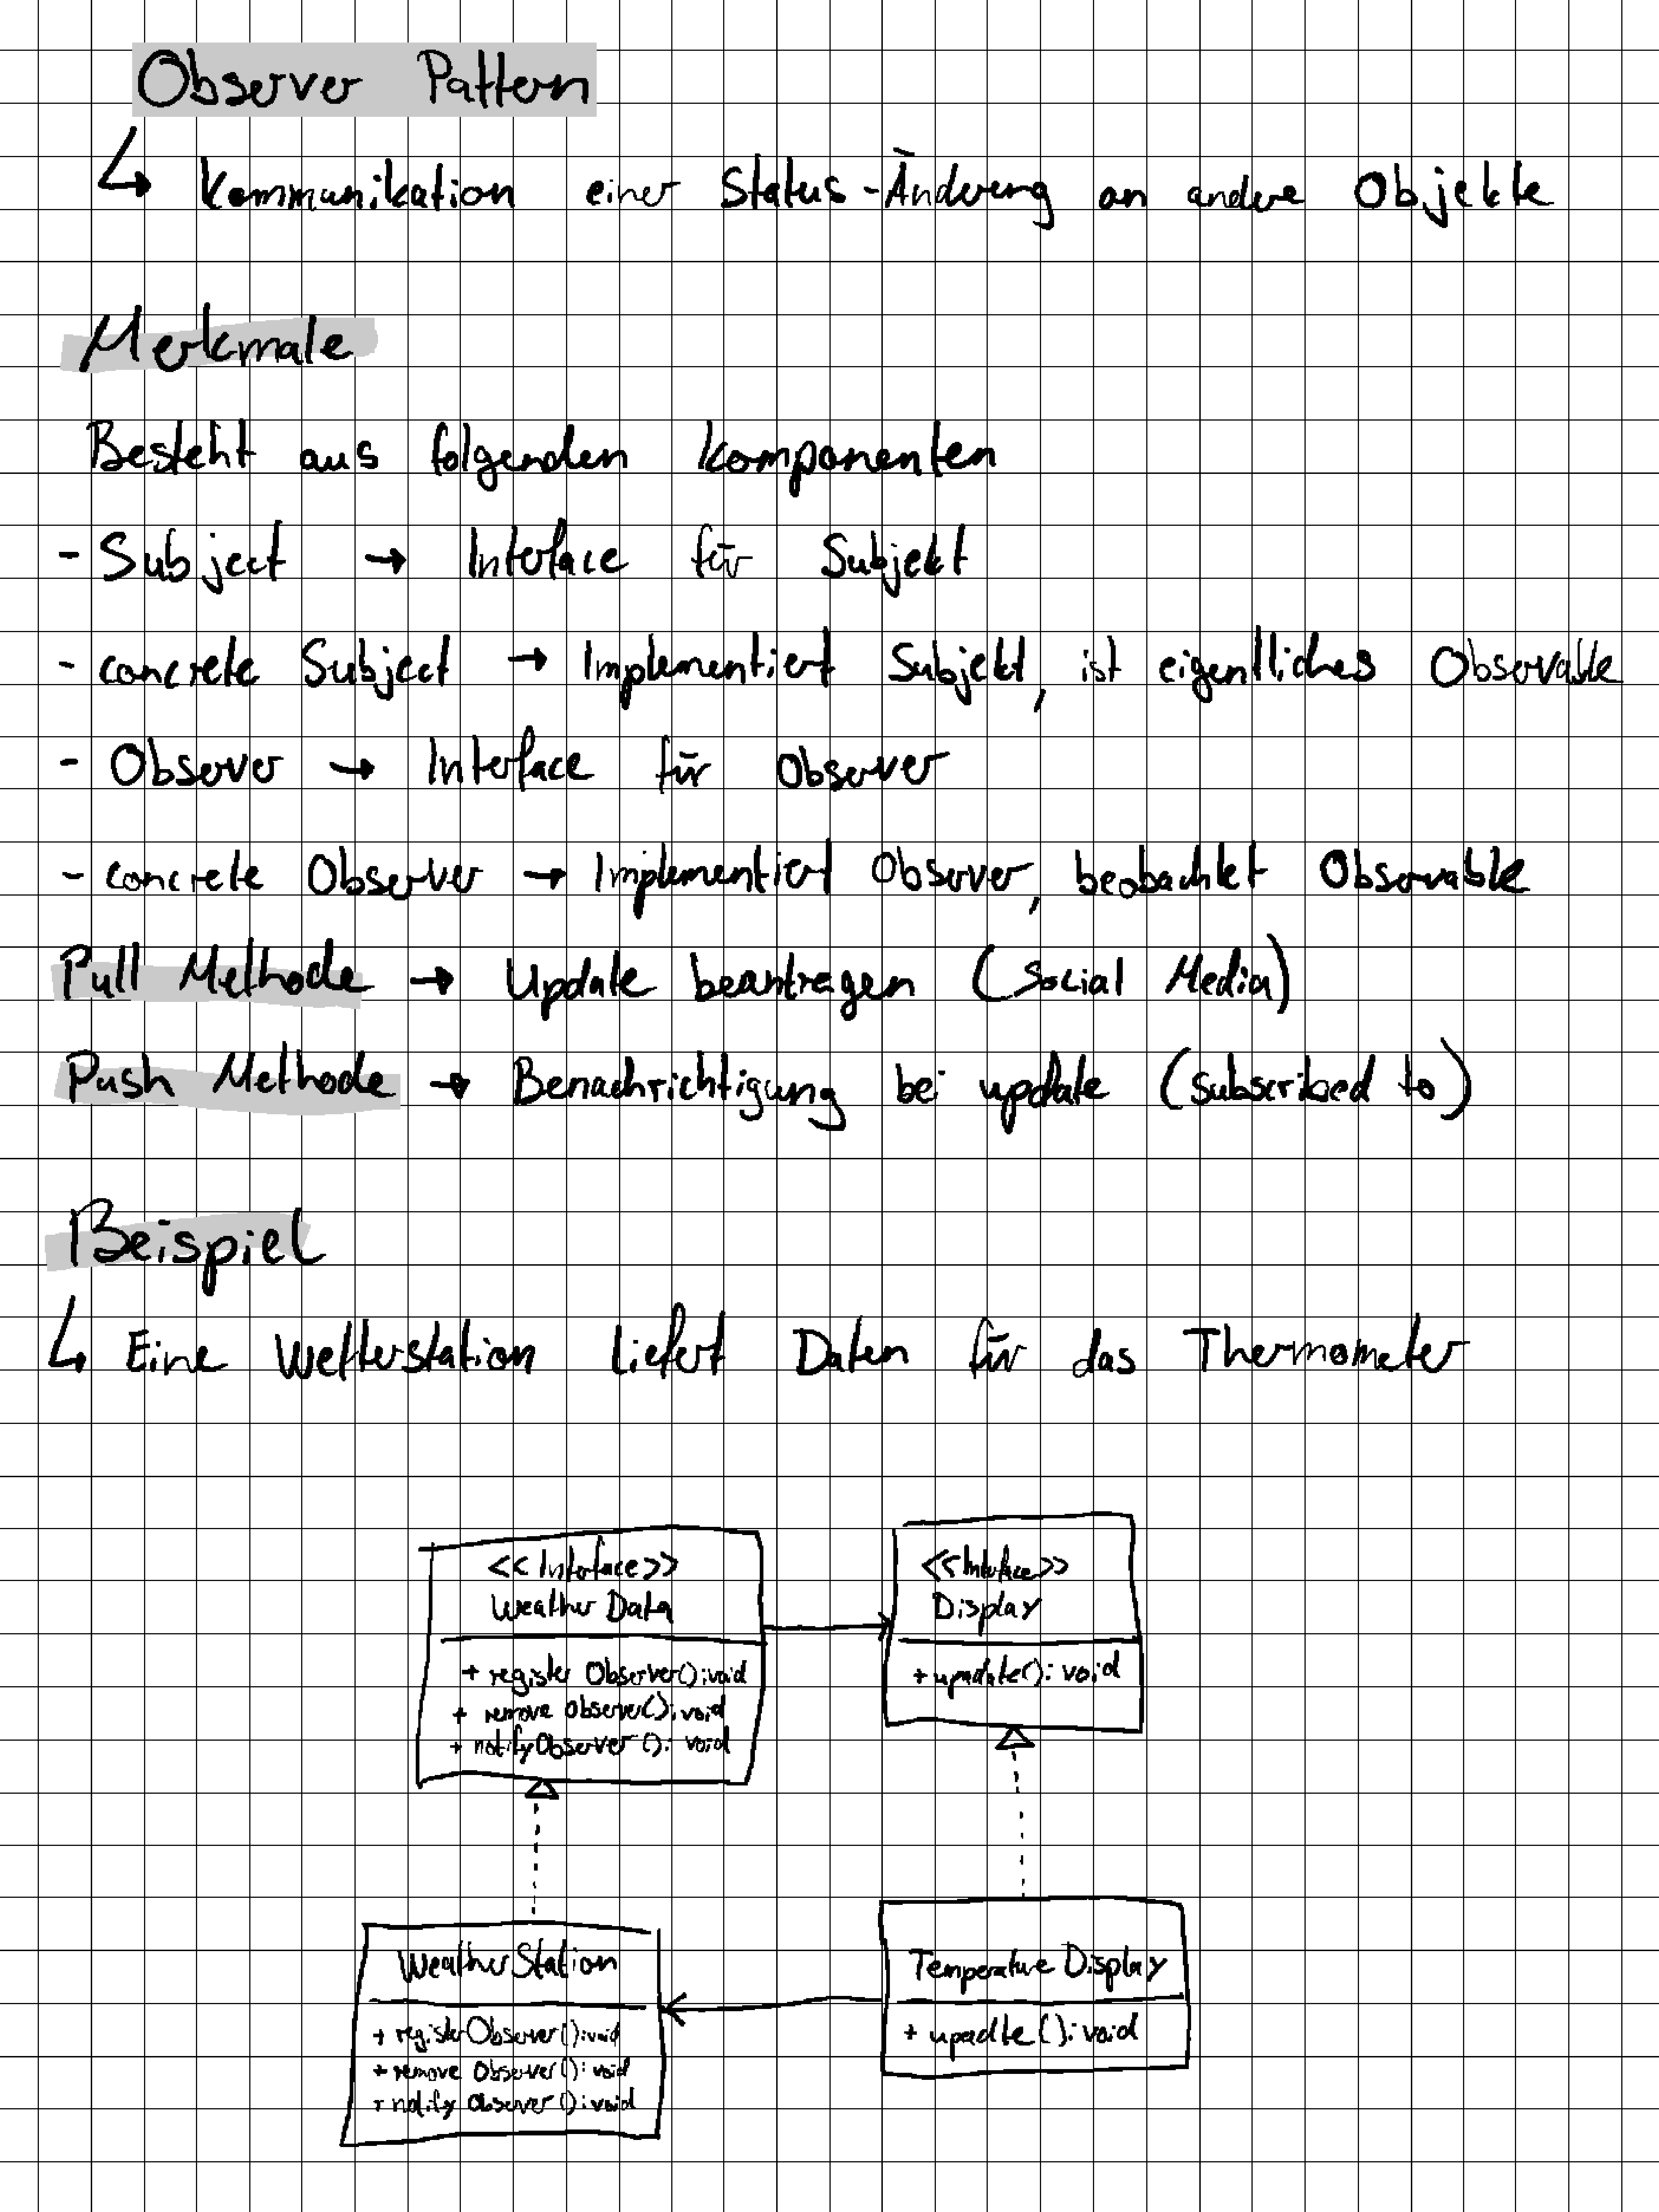 Observer Pattern
↳ Kommunikation einer Status-Änderung an andere Objekte
Merkmale
Besteht aus folgenden Komponenten
- Subject → Interface für Subjekt
- concrete Subject → Implementiert Subjekt, ist eigentliches Observable
- Observer → Interface für Observer
- concrete Observer → Implementiert Observer, beobachtet Observable
Pull Methode → Update beantragen (Social Media)
Push Methode → Benachrichtigung bei update (subscribed to)
Beispiel
↳ Eine Wetterstation liefert Daten für das Thermometer
<<Interface>>
Weather Data
+ register Observer():void
+ remove Observer():void
+ notifyObserver(): void
<<Interface>>
Display
+ upadate(): void
WeatherStation
+ registerObserver():void
+ remove Observer(): void
+ notify Observer(): void
Temperature Display
+ upadte(): void